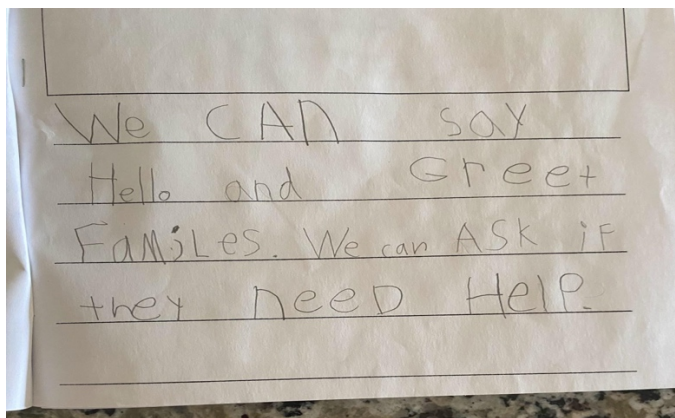 We CAn say
Hello and Greet
FamiLes. We can ASk iF
they neeD HelP.